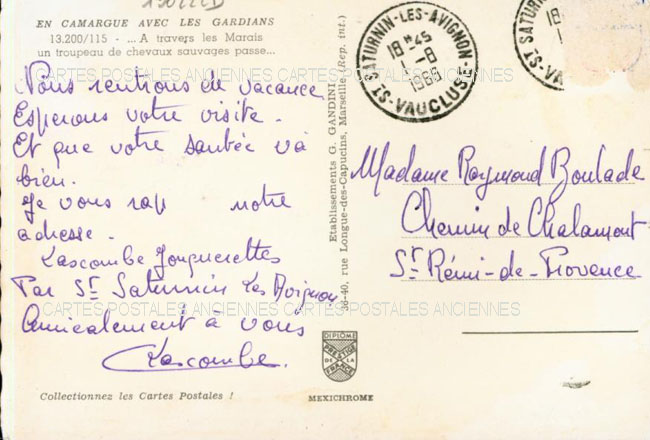 EN CAMARGUE AVEC LES GARDIANS
13.200/115 - ...A travers les Marais
un troupeau de chevaux sauvages passe...
CARTES POSTALES ANCIENNES CARTES POSTALES ANCIENNES
Nous rentrons de vacance
Esperons votre visite.
Et que votre santée va
bien.
Je vous rap notre
adresse.
Lascombe Jonquerettes
Par St Saturnin les Avignon
CARTES POSTALES ANCIENNES CARTES POSTALES ANCIENNES
Amicalement à vous
Lascombe.
Collectionnez les Cartes Postales !
Etablissements G. GANDINI
36-40, rue Longue-des-Capucins, Marseille (Rep. int.)
DIPLOME
PRESTIGE
DE LA
FRANCE
MEXICHROME
ST SATURNIN-LES-AVIGNON
18H45
1-8
1966
VAUCLUSE
ST SATURNIN
18
1
VA
Madame Raymond Boulade
Chemin de Chalamont
St Rémi-de-Provence